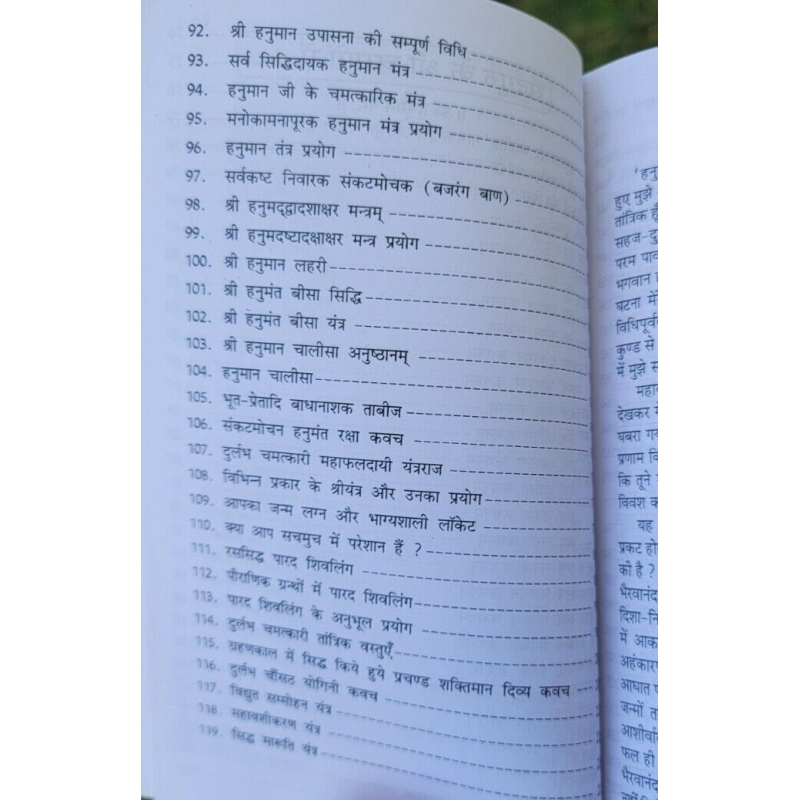 92. श्री हनुमान उपासना की सम्पूर्ण विधि
93. सर्व सिद्धिदायक हनुमान मंत्र
94. हनुमान जी के चमत्कारिक मंत्र
95. मनोकामनापूरक हनुमान मंत्र प्रयोग
96. हनुमान तंत्र प्रयोग
97. सर्वकष्ट निवारक संकटमोचक (बजरंग बाण)
98. श्री हनुमद्द्वादशाक्षर मन्त्रम्
99. श्री हनुमदष्टादक्षाक्षर मन्त्र प्रयोग
100. श्री हनुमान लहरी
101. श्री हनुमंत बीसा सिद्धि
102. श्री हनुमंत बीसा यंत्र
103. श्री हनुमान चालीसा अनुष्ठानम्
104. हनुमान चालीसा
105. भूत-प्रेतादि बाधानाशक ताबीज
106. संकटमोचन हनुमंत रक्षा कवच
107. दुर्लभ चमत्कारी महाफलदायी यंत्रराज
108. विभिन्न प्रकार के श्रीयंत्र और उनका प्रयोग
109. आपका जन्म लग्न और भाग्यशाली लॉकेट
110. क्या आप सचमुच में परेशान हैं ?
111. रससिद्ध पारद शिवलिंग
112. पौराणिक ग्रन्थों में पारद शिवलिंग
113. पारद शिवलिंग के अनुभूल प्रयोग
114. दुर्लभ चमत्कारी तांत्रिक वस्तुएँ
115. ग्रहणकाल में सिद्ध किये हुये प्रचण्ड शक्तिमान दिव्य कवच
116. दुर्लभ चौंसठ योगिनी कवच
117. विद्युत सम्मोहन यंत्र
118. महावशीकरण यंत्र
119. सिद्ध मारूति यंत्र
'हनु
हुए मुझे
तांत्रिक हूँ
सहज-दु
परम पाव
भगवान ह
घटना में
विधिपूर्व
कुण्ड से
में मुझे स
महा
देखकर मै
घबरा ग
प्रणाम कि
कि तूने
विवश क
यह
प्रकट हो
को है ?
भैरवानंद
दिशा-नि
में आक
अहंकार
आघात प
जन्मों त
आशीर्वा
फल ही
भैरवानंद